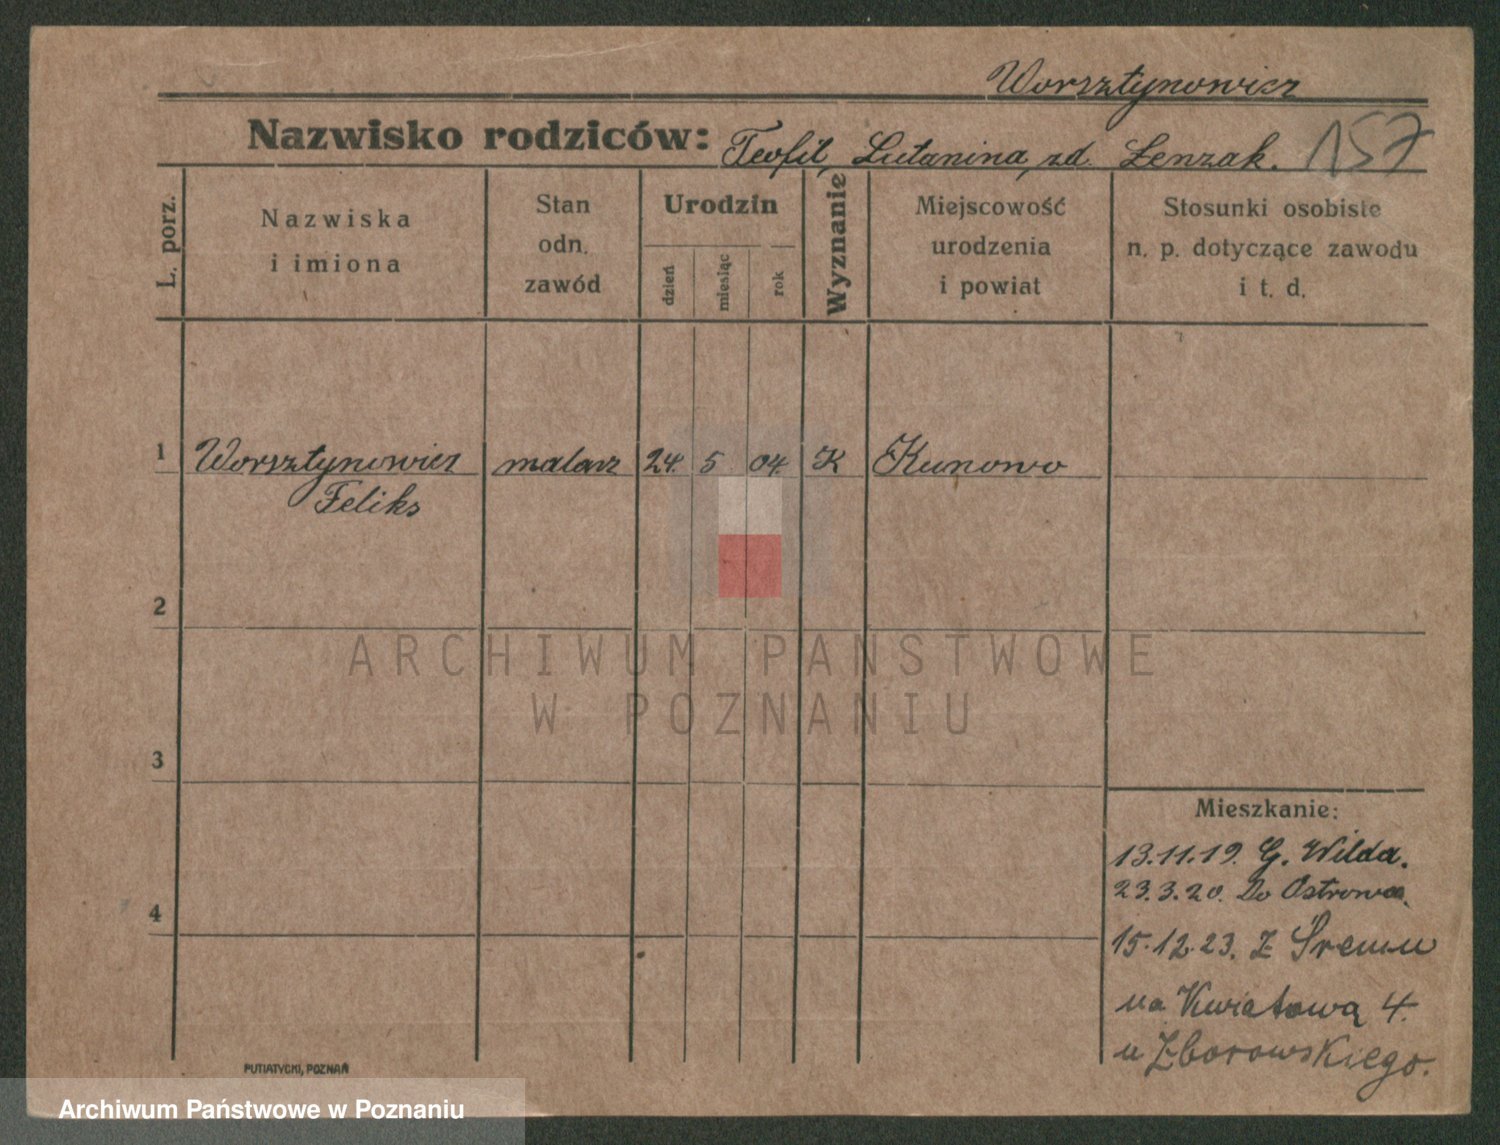 Worsztynowicz
Nazwisko rodziców: Teofil, Lutanina, zd. Lenzak. 157
L. porz.
Nazwiska
i imiona
Stan
odn.
zawód
Urodzin
dzień
miesiąc
rok
Wyznanie
Miejscowość
urodzenia
i powiat
Stosunki osobiste
n. p. dotyczące zawodu
i t. d.
1 Worsztynowicz malarz 24. 5 04. K Kunowo
Feliks
2
ARCHIWUM PAŃSTWOWE
W POZNANIU
3
Mieszkanie:
13.11.19. G. Wilda.
23.3.20. Do Ostrowa.
4
15.12.23. Z Śremu
na Kwiatową 4.
u Zborowskiego.
PUTIATYCKI, POZNAŃ
Archiwum Państwowe w Poznaniu